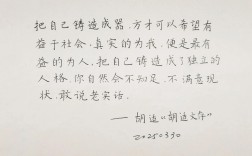 把自己铸造成器，方才可以希望有
益于社会。真实的为我，便是最有
益的为人，把自己铸造成了独立的
人格，你自然会不知足，不满意现
状，敢说老实话。
——胡适“胡适文存”
20250330